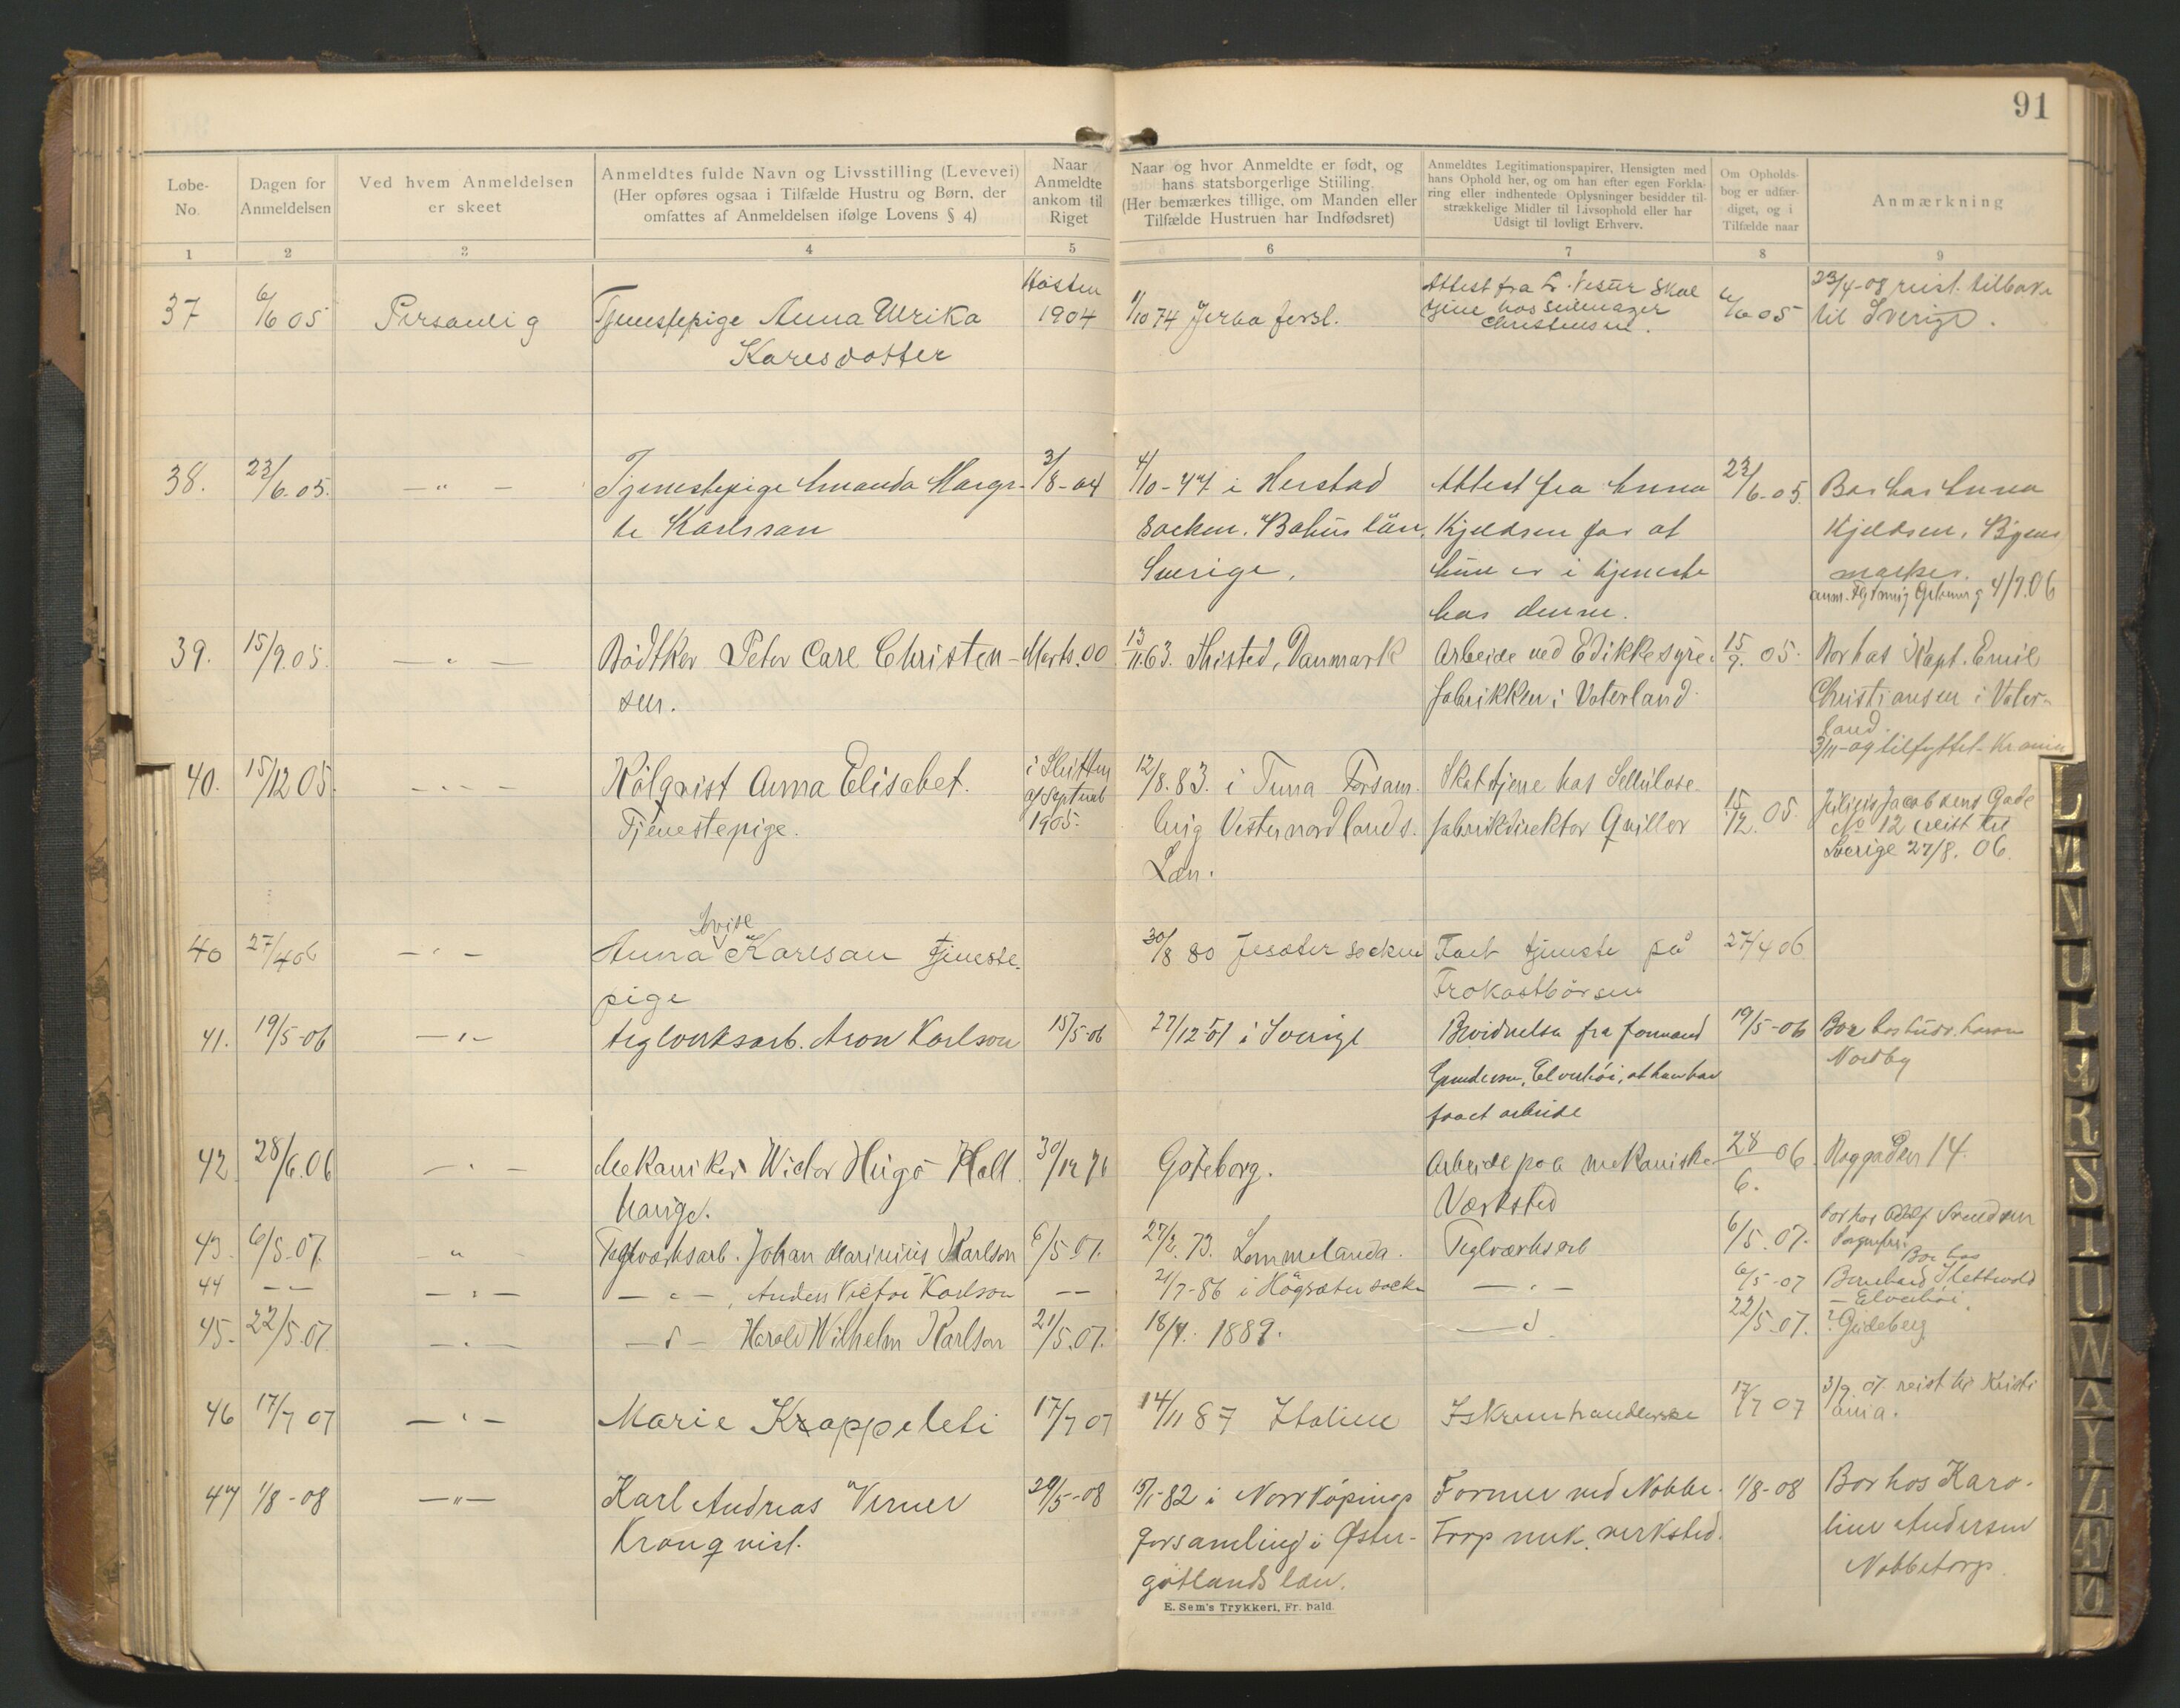 91
Løbe-No.
Dagen for Anmeldelsen
Ved hvem Anmeldelsen er skeet
Anmeldtes fulde Navn og Livsstilling (Levevei)
(Her opføres ogsaa i Tilfælde Hustru og Børn, der
omfattes af Anmeldelsen ifølge Lovens § 4)
Naar Anmeldte ankom til Riget
Naar og hvor Anmeldte er født, og
hans statsborgerlige Stiiling
(Her bemærkes tillige, om Manden eller
Tilfælde Hustruen har Indfødsret)
Anmeldtes Legitimationspapirer, Hensigten med
hans Ophold her, og om han efter egen Forkla-
ring eller indhentede Oplysninger besidder til-
strækkelige Midler til Livsophold eller har
Udsigt til lovligt Erhverv.
Om Opholds-
bog er udfær-
diget, og i
Tilfælde naar
Anmærkning
1 2 3 4 5 6 7 8 9
37 6/6 05 Personlig Tjenestepige Anna Ulrika Høsten 1904 1/10 74 Jerbo forsl. Attest fra 6/6 05 23/4-08 reist tilbake
Karlsdotter tjene hos Seilmager Christensen. til Sverige.
38. 23/6.05. — " — Tjenestepige Amanda Margre- 3/8-04 4/10-47 i Herstad Attest fra Anna 23/6-05. Bor hos Anna
te Karlsson Socken. Bohus län, Kjeldsen for at Kjeldsen, Byens
Sverige. hun er i tjeneste marker.
hos denne. 4/7.06
39. 15/9.05. — " — Bödtker Peter Carl Christen- Marts.00 13/11.63. Thisted, Danmark Arbeide ved Edikkesyre- 15/9. 05. Bor hos Kapt. Emil
sen. fabrikken i Vaterland. Christiansen i Vater-
land.
3/11-09 tilflyttet Krania
40. 15/12 05. — " — Kölqvist Anna Elisabet. i Slutten af Septemb 1905. 12/8.83. i Tuna Forsam- Skal tjene hos Sellulose- 15/12. 05. Julius Jacobsens Gade
Tjenestepige. ling Vesternordlands. fabrikdirektør Qviller No 12 reist til
Län. Sverige 27/8. 06.
40 27/4 06 — " — Anna Lovise Karlsan tjeneste- 30/8 80 Jesäter socken Faet tjeneste på 27/4 06
pige Frokostbörsen
41. 19/5-06 — " — teglverksarb. Aron Karlson 15/5-06 27/12-51 i Sverige Bevidnelse fra formand 19/5-06 Bor hos
Gundersen, Elverhöi, at han har Nordby
faaet arbeide
42. 28/6.06 — " — Mekaniker Wictor Hugo Holt 30/12 76 Göteborg. Arbeide paa mekaniske 28/6. 06. 14.
Værksted
43. 6/5.07. — " — Teglværksarb. Johan Marinius Karlson 6/5 07. 27/2.73. Lommelanda. Teglværksarb 6/5.07. Bor hos Adolf Svendsen
44 — — — " — — " — Anders Victor Karlson — — 21/7-86 i Högsäter socken — " — 6/5-07 Bor hos
Bernhard Slettevold
— Elverhöi.
45. 22/5.07. — " — — d — Harald Wilhelm Karlson 21/5.07. 18/4. 1889. — d 22/5.07. ? Gudeberg
46 17/7 07 — " — Marie Krappeleti 17/7 07 14/11 87 Italien Iskremhandlerske 17/7 07 3/9 07 reist til Kristi
ania.
47 1/8-08 — " — Karl Andreas Verner 29/5-08 15/1-82 i Norrköpings Former ved Nabbe- 1/8-08 Bor hos Karo-
Kronqvist. forsamling i Öster- Torp mek. verksted. line Andersen
götlands län. Nabbetorp.
E. Sem's Trykkeri, Fr. hald.
L
M
N
U
R
S
T
U
W
Y
Z
Æ
Ø